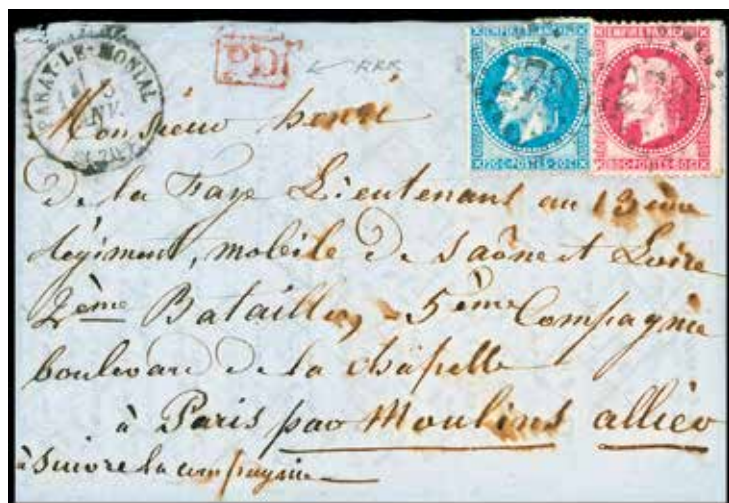 PARAY-LE-MONIAL
P.D.
RRR
EMPIRE FRANC
20 C POSTES 20 C
EMPIRE FRANC
80 C POSTES 80 C
Monsieur henri
de la Faye Lieutenant au 13 ème
régiment, mobile de Saône et Loire
2ème Bataillon, 5ème Compagnie
boulevard de la chapelle
à Paris par Moulins allier
à suivre la compagnie